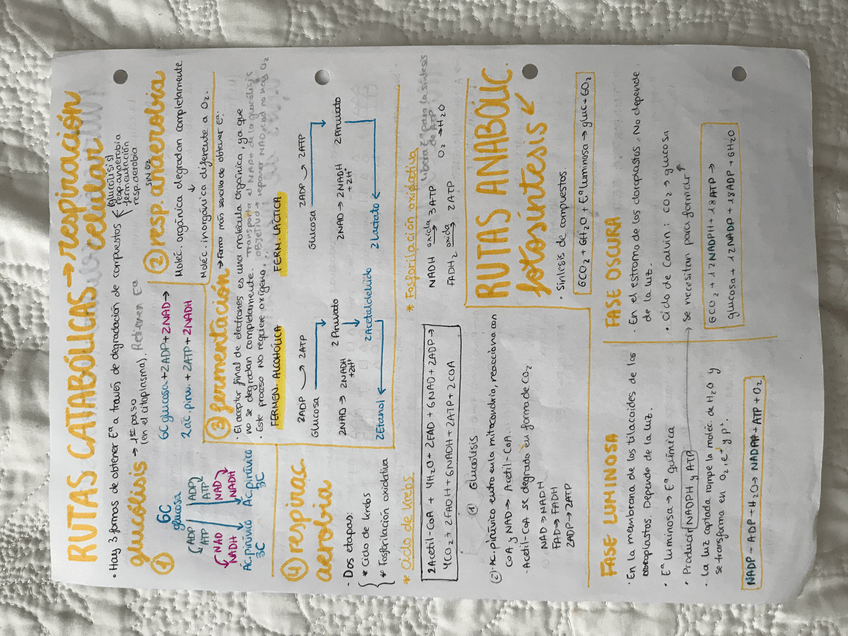 RUTAS CATABÓLICAS → respiración celular
• Hay 3 formas de obtener Eª a través de degradación de compuestos
glucólisis
resp. anaerobia
fermentación
resp. aerobia
① glucólisis → 1er paso
(en el citoplasma). Retienen Eª
6C
glucosa
ADP ADP
ATP ATP
NAD NAD
NADH NADH
Ac. pirúvico Ac. pirúvico
3C 3C
6C glucosa + 2ADP + 2NAD →
2 ác. pirú. + 2ATP + 2NADH
② resp. anaerobia
SIN O2
Moléc. orgánica degradan completamente
↓
Moléc. inorgánica diferente a O2.
③ fermentación → Forma más sencilla de obtener Eª
• El aceptor final de electrones es una molécula orgánica, ya que
no se degradan completamente. Transporta el NADH de la glucólisis
• Este proceso NO requiere oxígeno. objetivo → reponer NAD, cuando no hay O2
FERMEN. ALCOHÓLICA
2ADP → 2ATP
Glucosa
2 Piruvato
2NAD → 2NADH
+2H+
2 Acetaldehído
2 Etanol
FERM. LÁCTICA
2ADP → 2ATP
Glucosa
2 Piruvato
2NAD → 2NADH
+2H+
2 Lactato
④ respirac. aerobia
• Dos etapas:
* Ciclo de krebs
* Fosforilación oxidativa
* Ciclo de krebs
2Acetil-CoA + 4H2O + 2FAD + 6NAD + 2ADP →
4CO2 + 2FADH + 6NADH + 2ATP + 2COA
(1) Glucólisis
(2) Ac. pirúvico entra en la mitocondria, reacciona con
CoA y NAD → Acetil-CoA.
- Acetil-CoA se degrada en forma de CO2
NAD → NADH
FAD → FADH
2ADP → 2ATP
* Fosforilación oxidativa
NADH oxida → 3 ATP
FADH2 oxida → 2 ATP
O2 → H2O
RUTAS ANABÓLIC.
fotosíntesis
• Síntesis de compuestos.
6CO2 + 6H2O + Eª luminosa → gluc + 6O2
FASE LUMINOSA
• En la membrana de los tilacoides de los
cloroplastos. Depende de la luz.
• Eª luminosa → Eª química
• Producir NADPH y ATP
• La luz captada rompe la moléc. de H2O y
se transforma en O2, e- y p+.
NADP + ADP + H2O → NADPH + ATP + O2
FASE OSCURA
• En el estroma de los cloroplastos. No depende
de la luz.
• Ciclo de Calvin: CO2 → glucosa
Se necesitan para formar
6CO2 + 12NADPH + 18ATP →
glucosa + 12NADP + 18ADP + 6H2O